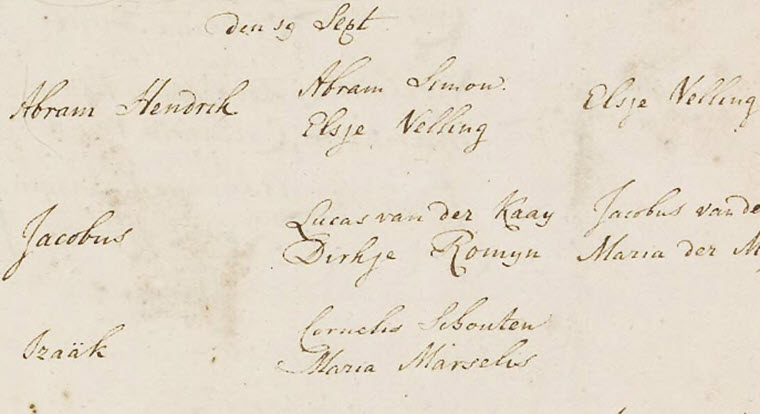 den 19 Sept
Abram Hendrik
Abram Simon.
Elsje Velling
Elsje Velling
Jacobus
Lucas van der Kaay
Dirkje Romyn
Jacobus van de
Maria der M
Izaäk
Cornelis Schouten
Maria Marselis